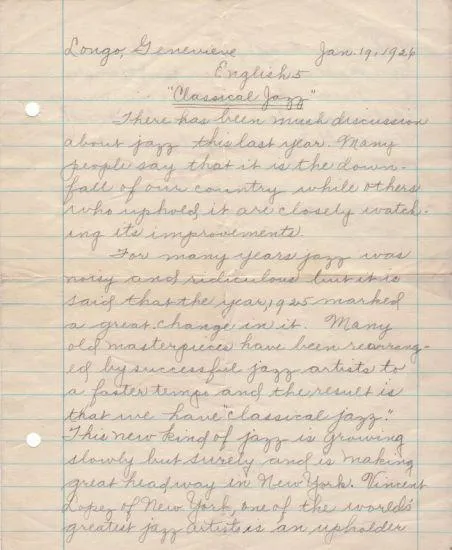 Longo, Genevieve Jan. 19, 1926
English 5
"Classical Jazz"
There has been much discussion
about jazz this last year. Many
people say that it is the down-
fall of our country while others
who uphold it are closely watch-
ing its improvements.
For many years jazz was
noisy and ridiculous but it is
said that the year, 1925 marked
a great change in it. Many
old masterpieces have been rearrang-
ed by successful jazz artists to
a faster tempo and the result is
that we have "classical jazz".
This new kind of jazz is growing
slowly but surely and is making
great headway in New York. Vincent
Lopez of New York, one of the world's
greatest jazz artists is an upholder